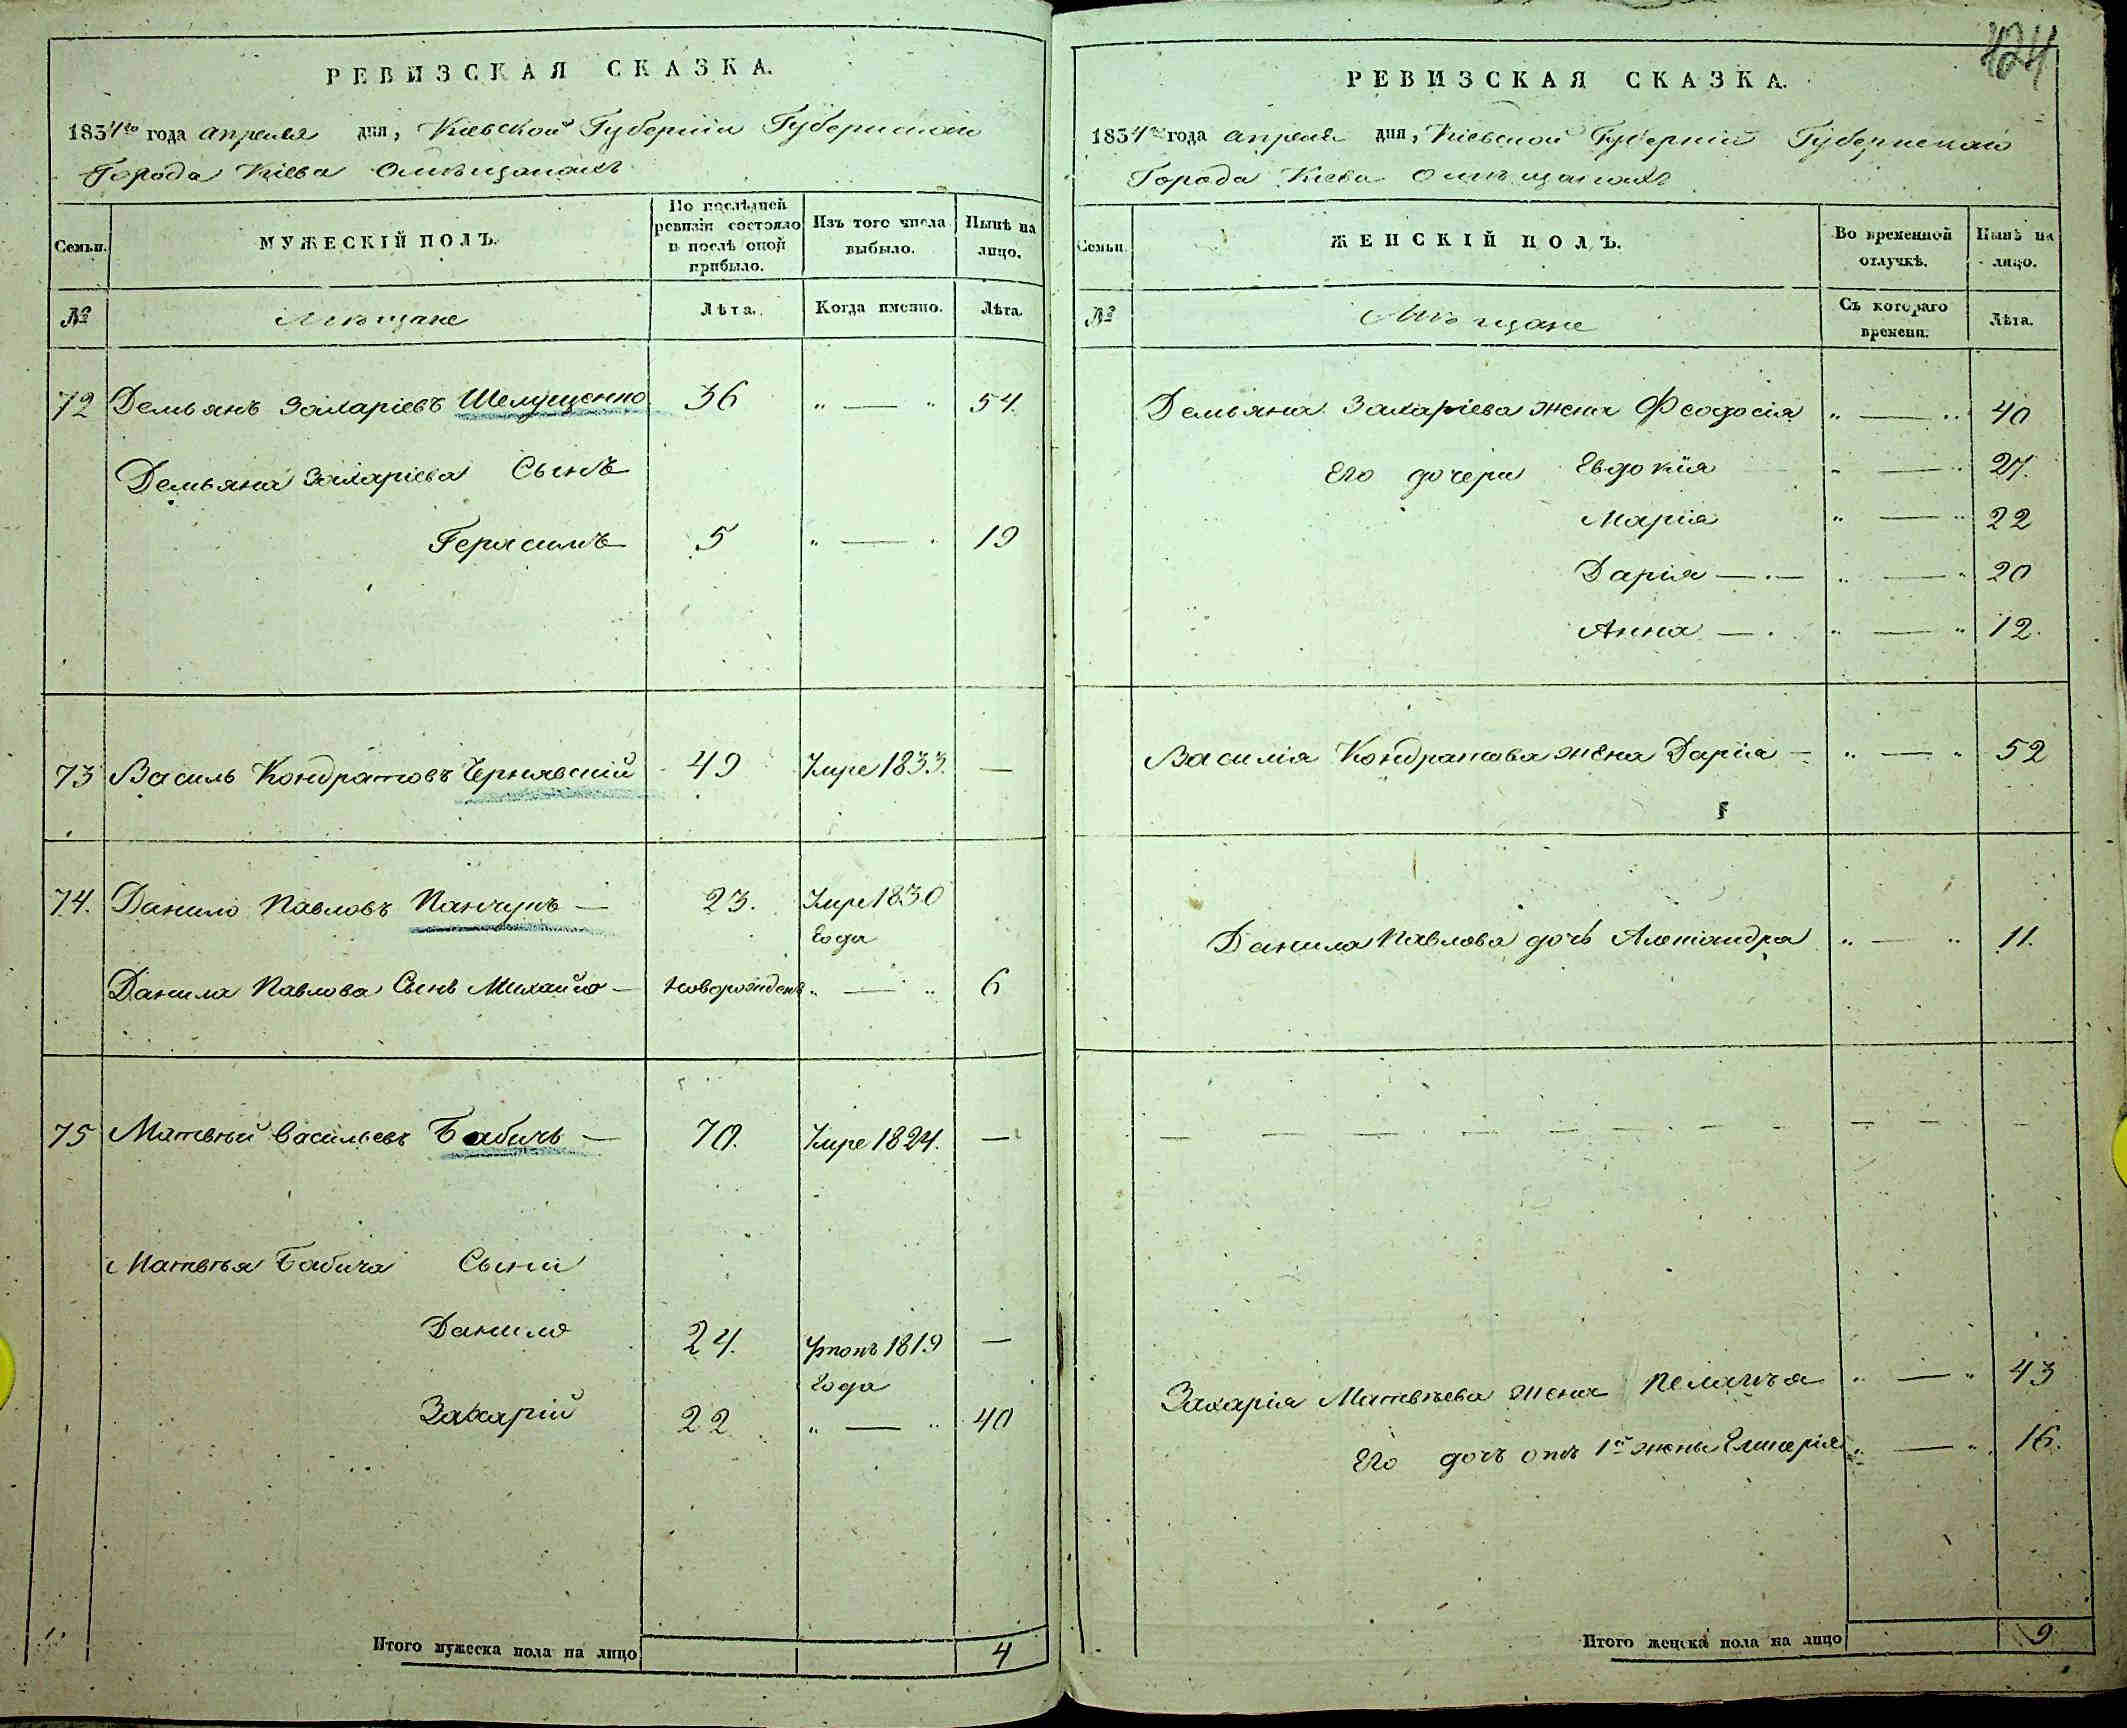 РЕВИЗСКАЯ СКАЗКА.
1834го года апреля дня, Киевской Губернии Губернскаго
Города Кіева О мѣщанахъ
Семьи. МУЖЕСКІЙ ПОЛЪ. По послѣдней ревизіи состояло и послѣ оной прибыло. Изъ того числа выбыло. Нынѣ на лицо.
№ Мѣщане Лѣта. Когда именно. Лѣта.
72 Демьянъ Захаріевъ Шелущенко 36 „ — „ 54.
Демьяна Захаріева Сынъ
Герасимъ 5 „ — „ 19
73 Василь Кондратовъ Чернявскій 49 Умре 1833. —
74. Данило Павловъ Панчукъ — 23. Умре 1830
года
Данила Павлова Сынъ Михайло — новорожденъ „ — „ 6
75 Матвѣй Васильевъ Бабичъ — 70. Умре 1824. —
Матвѣя Бабича Сыни
Данило 24. Утопъ 1819 —
года
Захарій 22 „ — „ 40
Итого мужеска пола на лицо 4
424
РЕВИЗСКАЯ СКАЗКА.
1834го года апреля дня, Кіевской Губерніи Губернскаго
Города Кіева О мѣщанахъ
Семьи. ЖЕНСКІЙ ПОЛЪ. Во временной отлучкѣ. Нынѣ на лицо.
№ Мѣщане Съ котораго времени. Лѣта.
Демьяна Захаріева жена Феодосія „ — „ 40
Его дочери Евдокія „ — „ 27.
Марія „ — „ 22
Дарія — . — „ — „ 20
Анна — . „ — „ 12.
Василія Кондратова жена Дарія — „ — „ 52
Данила Павлова дочь Александра „ — „ 11.
Захарія Матвѣева жена Пелагѣя „ — „ 43
Его дочь отъ 1й жены Гликерія „ — „ 16.
Итого женска пола на лицо 9